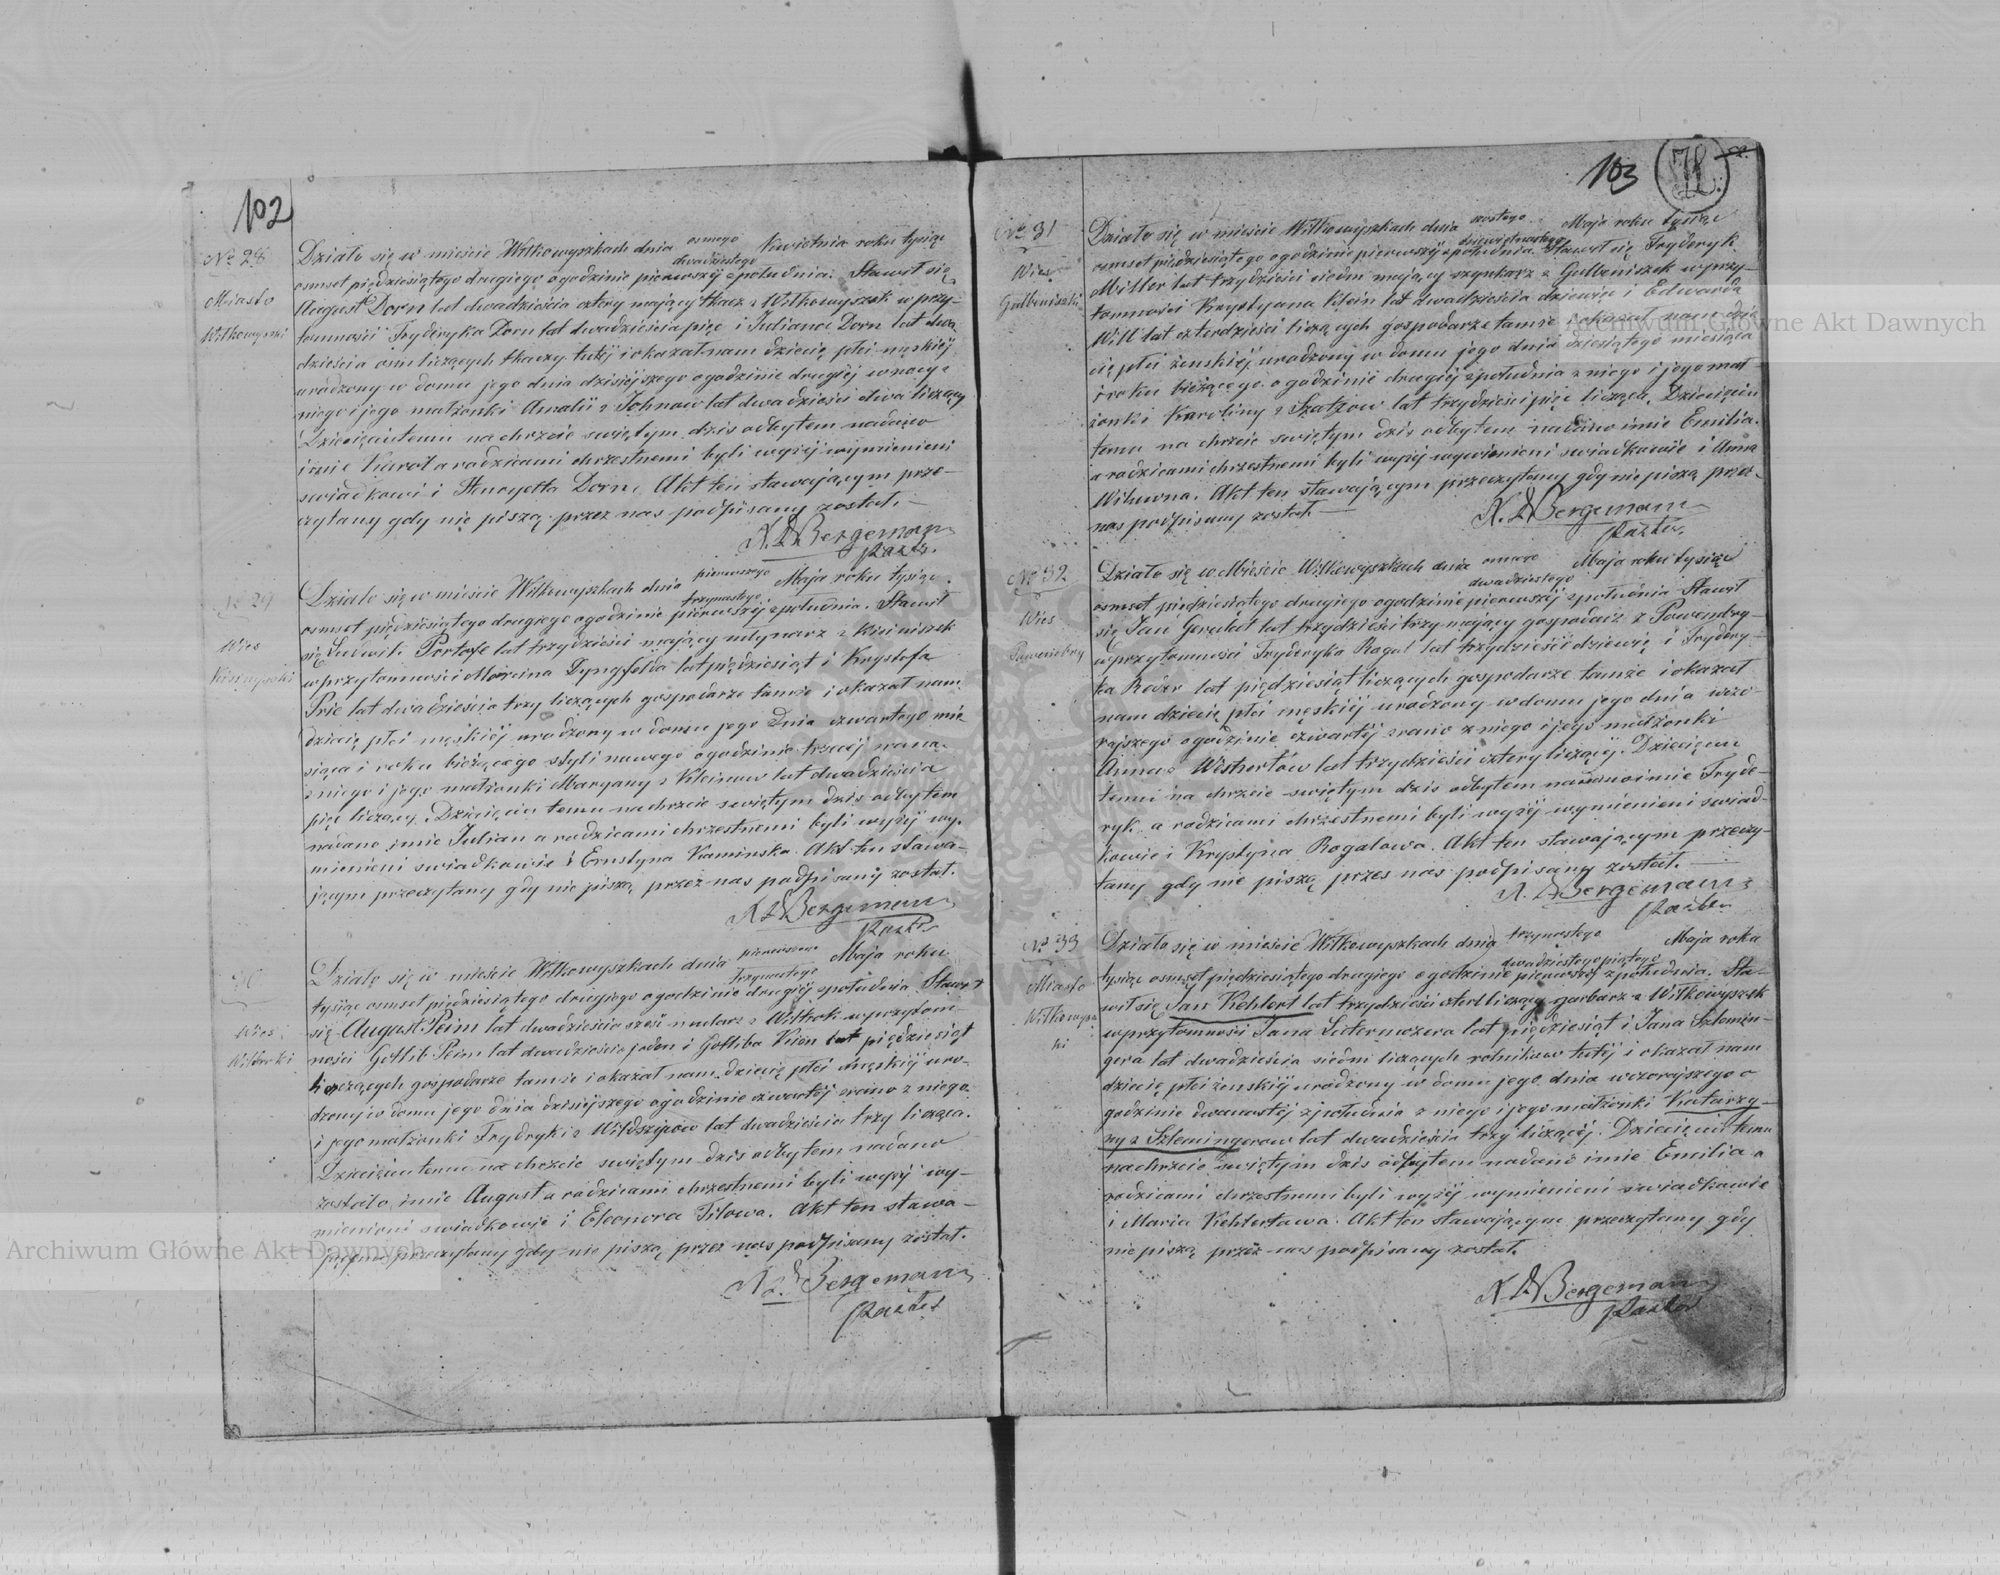 102
No 28
Miasto
Wilkowyszki
Działo się w mieście Wilkowyszkach dnia ósmego / dwudziestego Kwietnia roku tysiąc
osmset pięćdziesiątego drugiego o godzinie pierwszéj z południa. Stawił się
August Dorn lat dwadzieścia cztery mający tkacz z Wilkowyszek w przy-
tomności Fryderyka Dorn lat dwadzieścia pięć i Juliana Dorn lat dwa
dzieścia ośm liczących tkaczy tutéj i okazał nam dziecię płci męskiéj
urodzony w domu jego dnia dzisiejszego o godzinie drugiéj w nocy z
niego i jego małżonki Amalii z Johnow lat dwadzieści dwa liczący
Dziecięciu temu na chrzcie świętym dziś odbytem nadano
imie Karol a rodzicami chrzestnemi byli wyżéj wymienieni
swiadkowi i Henryetta Dorn. Akt ten stawającym prze-
czytany gdy nie piszą przez nas podpisany został.
K. L. Bergemann
Pastor.
No 29
Wies
Działo się w mieście Wilkowyszkach dnia pierwszego / trzynastego Maja roku tysiąc
osmset pięćdziesiątego drugiego o godzinie pierwszéj z południa. Stawił
się Ludwik lat trzydzieści mający młynarz z
w przytomności Marcina Dyngfelda lat pięćdziesiąt i Krystofa
Prie lat dwadzieścia trzy liczących gospodarze tamże i okazał nam
dziecię płci męskiéj urodzony w domu jego Dnia czwartego mie
siąca i roku bieżącego styli nowego o godzinie trzeciéj z rana
z niego i jego małżonki Maryany z Kleinow lat dwadzieścia
pięć liczący. Dziecięciu temu na chrzcie świętym dziś odbytem
nadano imie Julian a rodzicami chrzestnemi byli wyżéj wy-
mienieni swiadkowie i Ernstyna Kaminska. Akt ten stawa-
jącym przeczytany gdy nie piszą przez nas podpisany został.
K. L. Bergemann
Pastor
30
Wies
Wilkroki
Działo się w mieście Wilkowyszkach dnia pierwszego / Trzynastego Maja roku
tysiąc osmset pięćdziesiątego drugiego o godzinie drugiéj z południa Stawił
się August Peim lat dwadzieścia sześć mularz z Wilkrok w przytom-
ności Gotlib Peim lat dwadzieścia jeden i Gotliba lat pięćdziesiąt
liczących gospodarze tamże i okazał nam dziecię płci męskiéj uro-
dzony w domu jego dnia dzisiejszego o godzinie czwartéj z rano z niego
i jego małżonki Frydryki z lat dwadzieścia trzy licząca.
Dziecięciu temu na chrzcie świętym dziś odbytem nadano
zostało imie August a rodzicami chrzestnemi byli wyżéj wy-
mienieni swiadkowie i Eleonora Tilowa. Akt ten stawa-
jącym przeczytany gdy nie piszą przez nas podpisany został.
K. L. Bergemann
Pastor
103
No 31
Wies
Gulbiniszki
Działo się w mieście Wilkowyszkach dnia szostego / dziewiętnastego Maja roku tysiąc
osmset pięćdziesiątego o godzinie pierwszéj z południa. Stawił się Fryderyk
Miller lat trzydzieści siedm mający szynkarz z Gulbiniszek w przy-
tomności Krystyana Klein lat dwadzieścia dziewięć i Edwarda
Will lat czterdzieści liczących gospodarze tamże i okazał nam dzie
cię płci żenskiéj urodzony w domu jego dnia dziesiątego miesiąca
i roku bieżącego o godzinie drugiéj z południa z niego i jego mał-
żonki Karoliny z Szatzow lat trzydzieści pięć licząca. Dziecięciu
temu na chrzcie świętym dziś odbytem nadano imie Emilia.
a rodzicami chrzestnemi byli wyżéj wymienieni swiadkowie i Anna
Wiluwna. Akt ten stawającym przeczytany gdy nie piszą przez
nas podpisany został.
K. L. Bergemann
Pastor.
No 32
Wies
Działo się w Mieście Wilkowyszkach dnia osmego / dwudziestego Maja roku tysiąc
osmset pięćdziesiątego drugiego o godzinie pierwszéj z południa Stawił
się Jan lat trzydzieści trzy mający gospodarz z
w przytomności Fryderyka Rogal lat trzydzieści dziewięć i Frydery-
ka Reder lat pięćdziesiąt liczących gospodarze tamże i okazał
nam dziecię płci męskiéj urodzony w domu jego dnia wczo-
rajszego o godzinie czwartéj z rano z niego i jego małżonki
Anna z lat trzydzieści cztery liczącéj. Dziecięciu
temu na chrzcie świętym dziś odbytem nadano imie Fryde-
ryk a rodzicami chrzestnemi byli wyżéj wymienieni swiad-
kowie i Krystyna Rogalowa. Akt ten stawającym przeczy-
tany gdy nie piszą przez nas podpisany został.
K. L. Bergemann
Pastor
No 33
Miasto
Wilkowysz
ki
Działo się w mieście Wilkowyszkach dnia trzynastego / dwudziestego piątego Maja roku
tysiąc osmset pięćdziesiątego drugiego o godzinie pierwszéj z południa. Sta-
wił się Jan Kehlert lat trzydzieści czteri liczący garbarz z Wilkowyszek
w przytomności Jana lat pięćdziesiąt i Jana Szlemin-
gera lat dwadzieścia siedm liczących rolników tutéj i okazał nam
dziecię płci żenskiéj urodzony w domu jego dnia wczorajszego o
godzinie dwunastéj z południa z niego i jego małżonki Katarzy-
ny z Szlemingerow lat dwadzieścia trzy liczącéj. Dziecięciu temu
na chrzcie świętym dziś odbytem nadano imie Emilia a
rodzicami chrzestnemi byli wyżéj wymienieni swiadkowie
i Maria Kehlertowa. Akt ten stawającym przeczytany gdy
nie piszą przez nas podpisany został.
K. L. Bergemann
Pastor
Archiwum Główne Akt Dawnych
Archiwum Główne Akt Dawnych